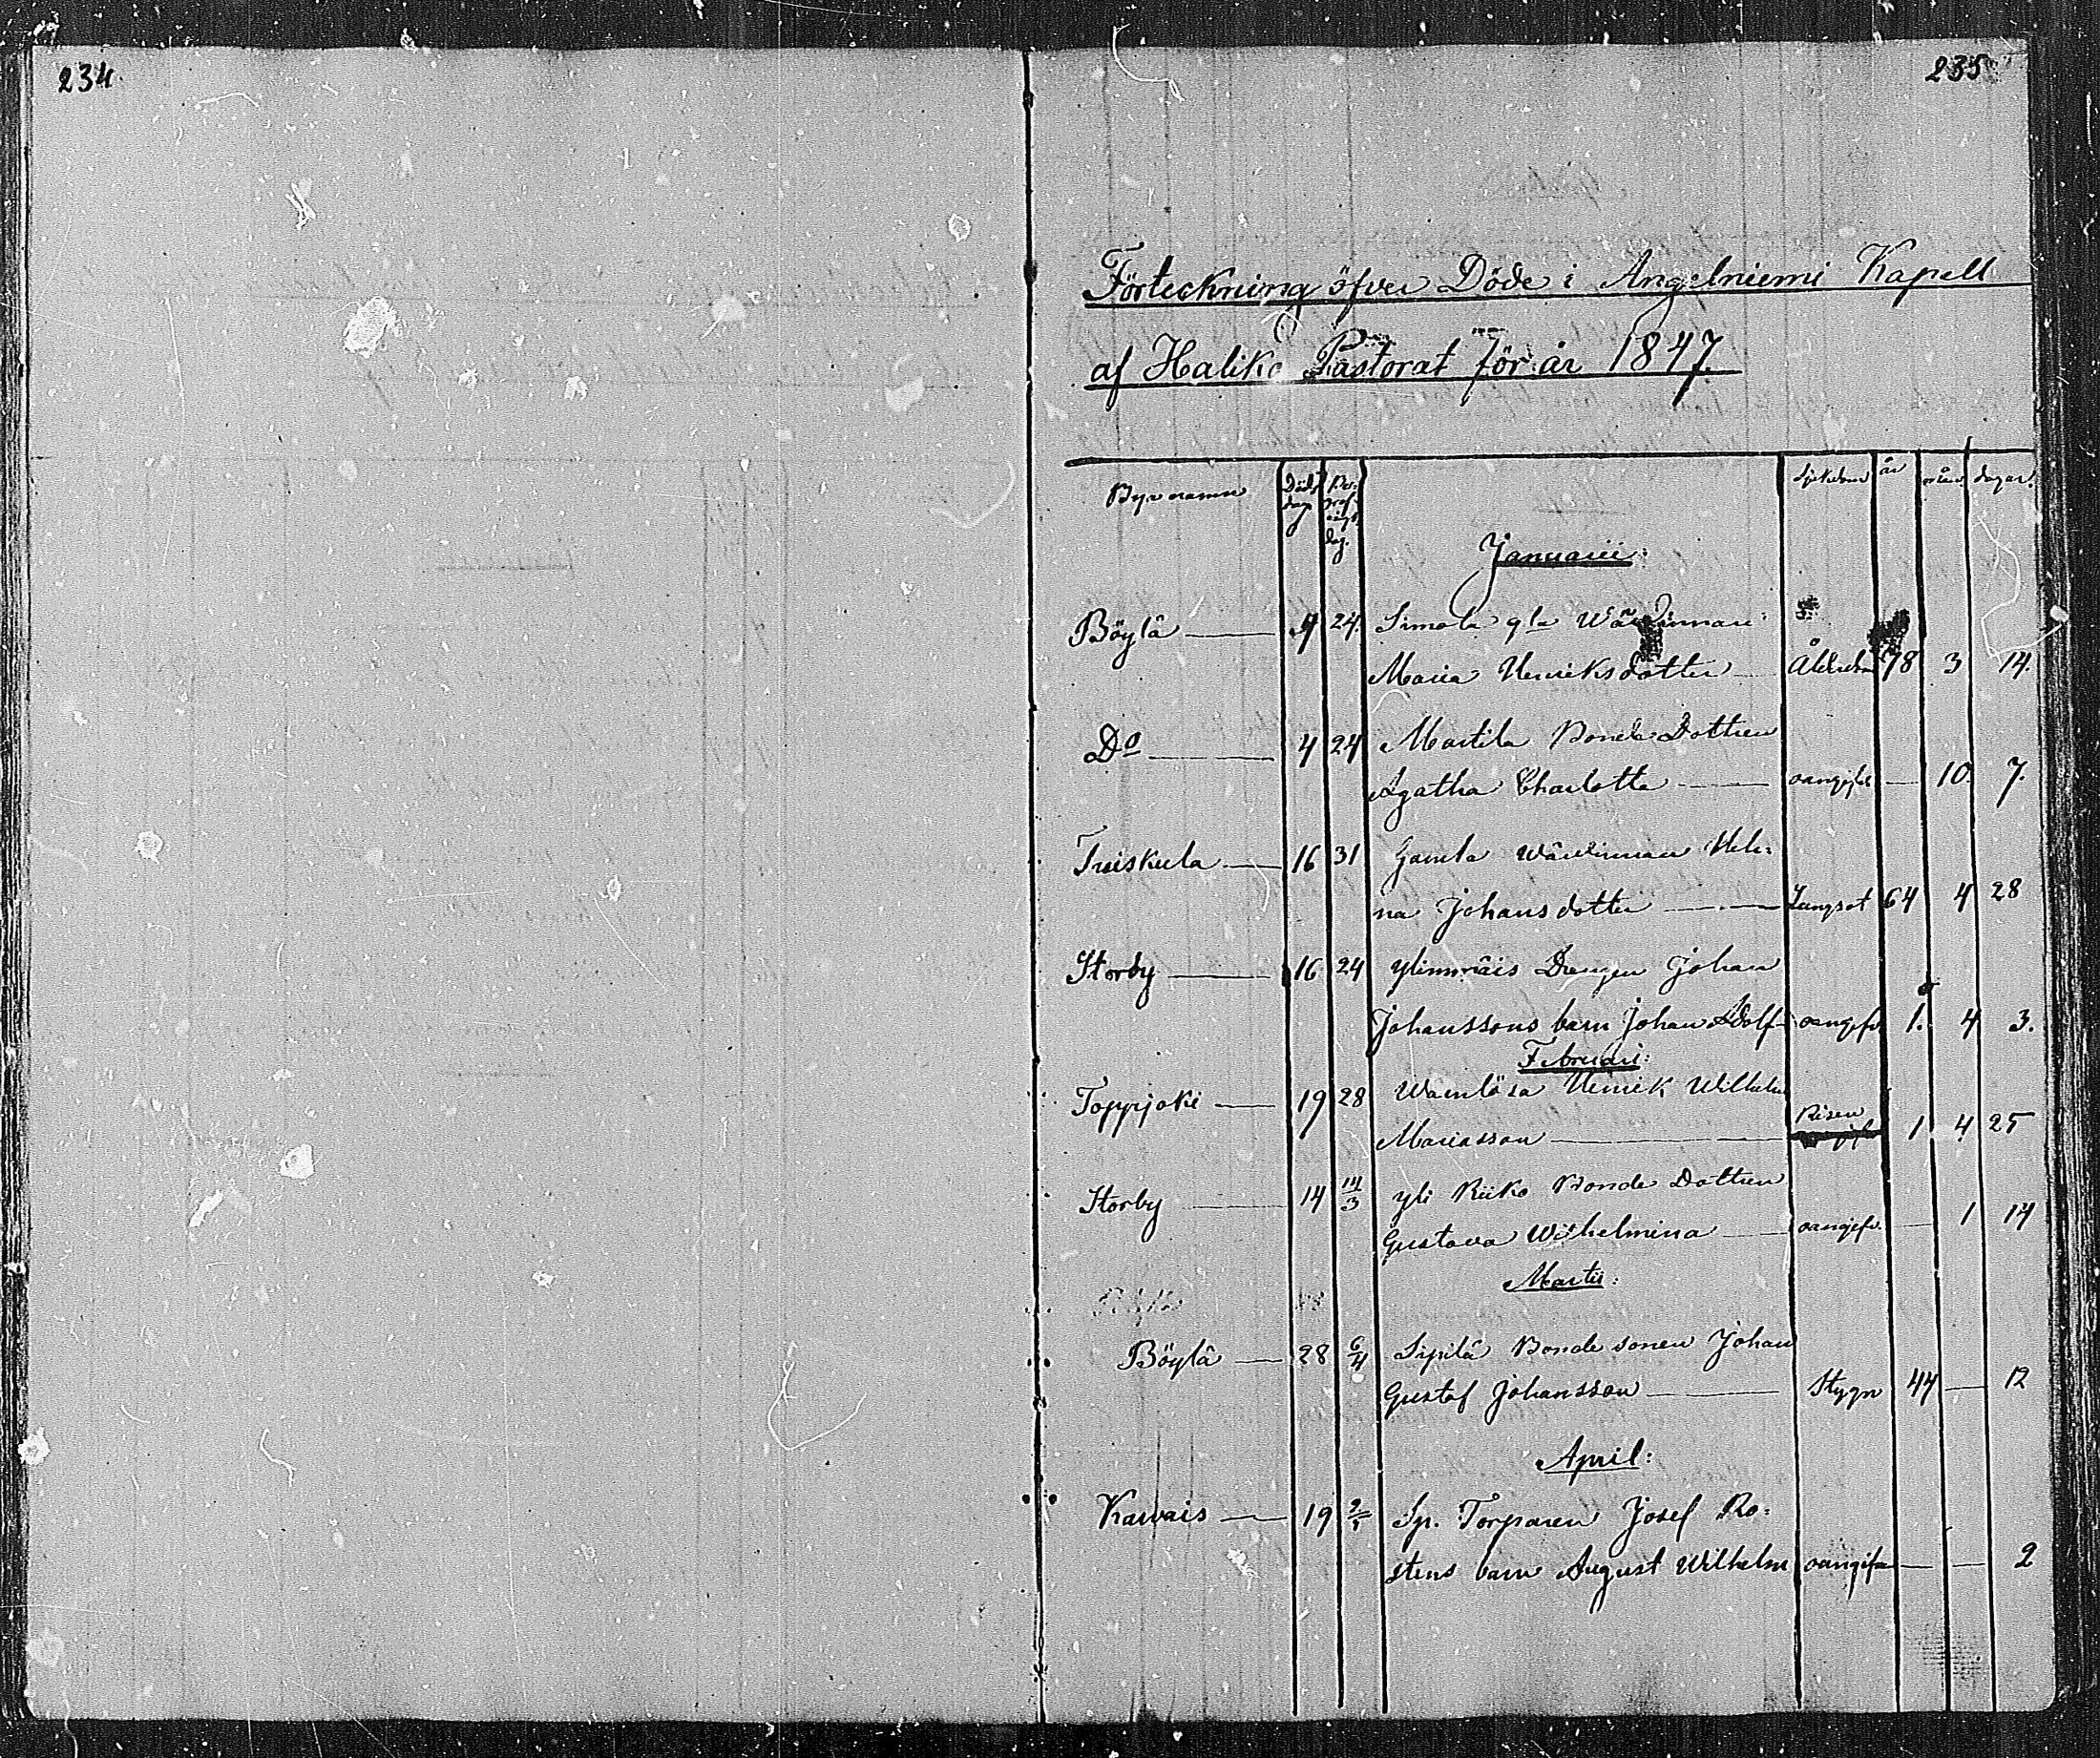 234.
235
Förteckning öfver Döde i Angelniemi Kapell
af Haliko Pastorat för år 1847.
Byarnamn Döds dag Be: graf: nings dag. Sjukdom år mån. dagar.
Januarii:
Böylä 4 24. Simola gla Wärdinnan
Maria Henriksdotter Ålderdom 78 3 14.
Do 4 24 Martila Bonde Dottren
Agatha Charlotta oangifv. 10 7.
Truiskula 16 31 Gamla Wärdinnan Hele:
na Johansdotter Lungsot 64 4 28
Storby 16 24 Ylimräis Drengen Johan
Johanssons barn Johan Adolf oangifv. 1. 4 3.
Februari:
Toppjoki 19 28 Wärnlösa Henrik Wilhelm
Mariasson Risen 1 4 25
Storby 14 14/3 Yli Kiiko Bonde Dottren
Gustava Wilhelmina oangifv. 1 14
Martii:
Böylä 28 6/4 Sipilä Bonde sonen Johan
Gustaf Johansson Stygn 44 12
April:
Karvais 19 2/5 Sp. Torparen Josef Ro:
stens barn August Wilhelm oangifv. 2